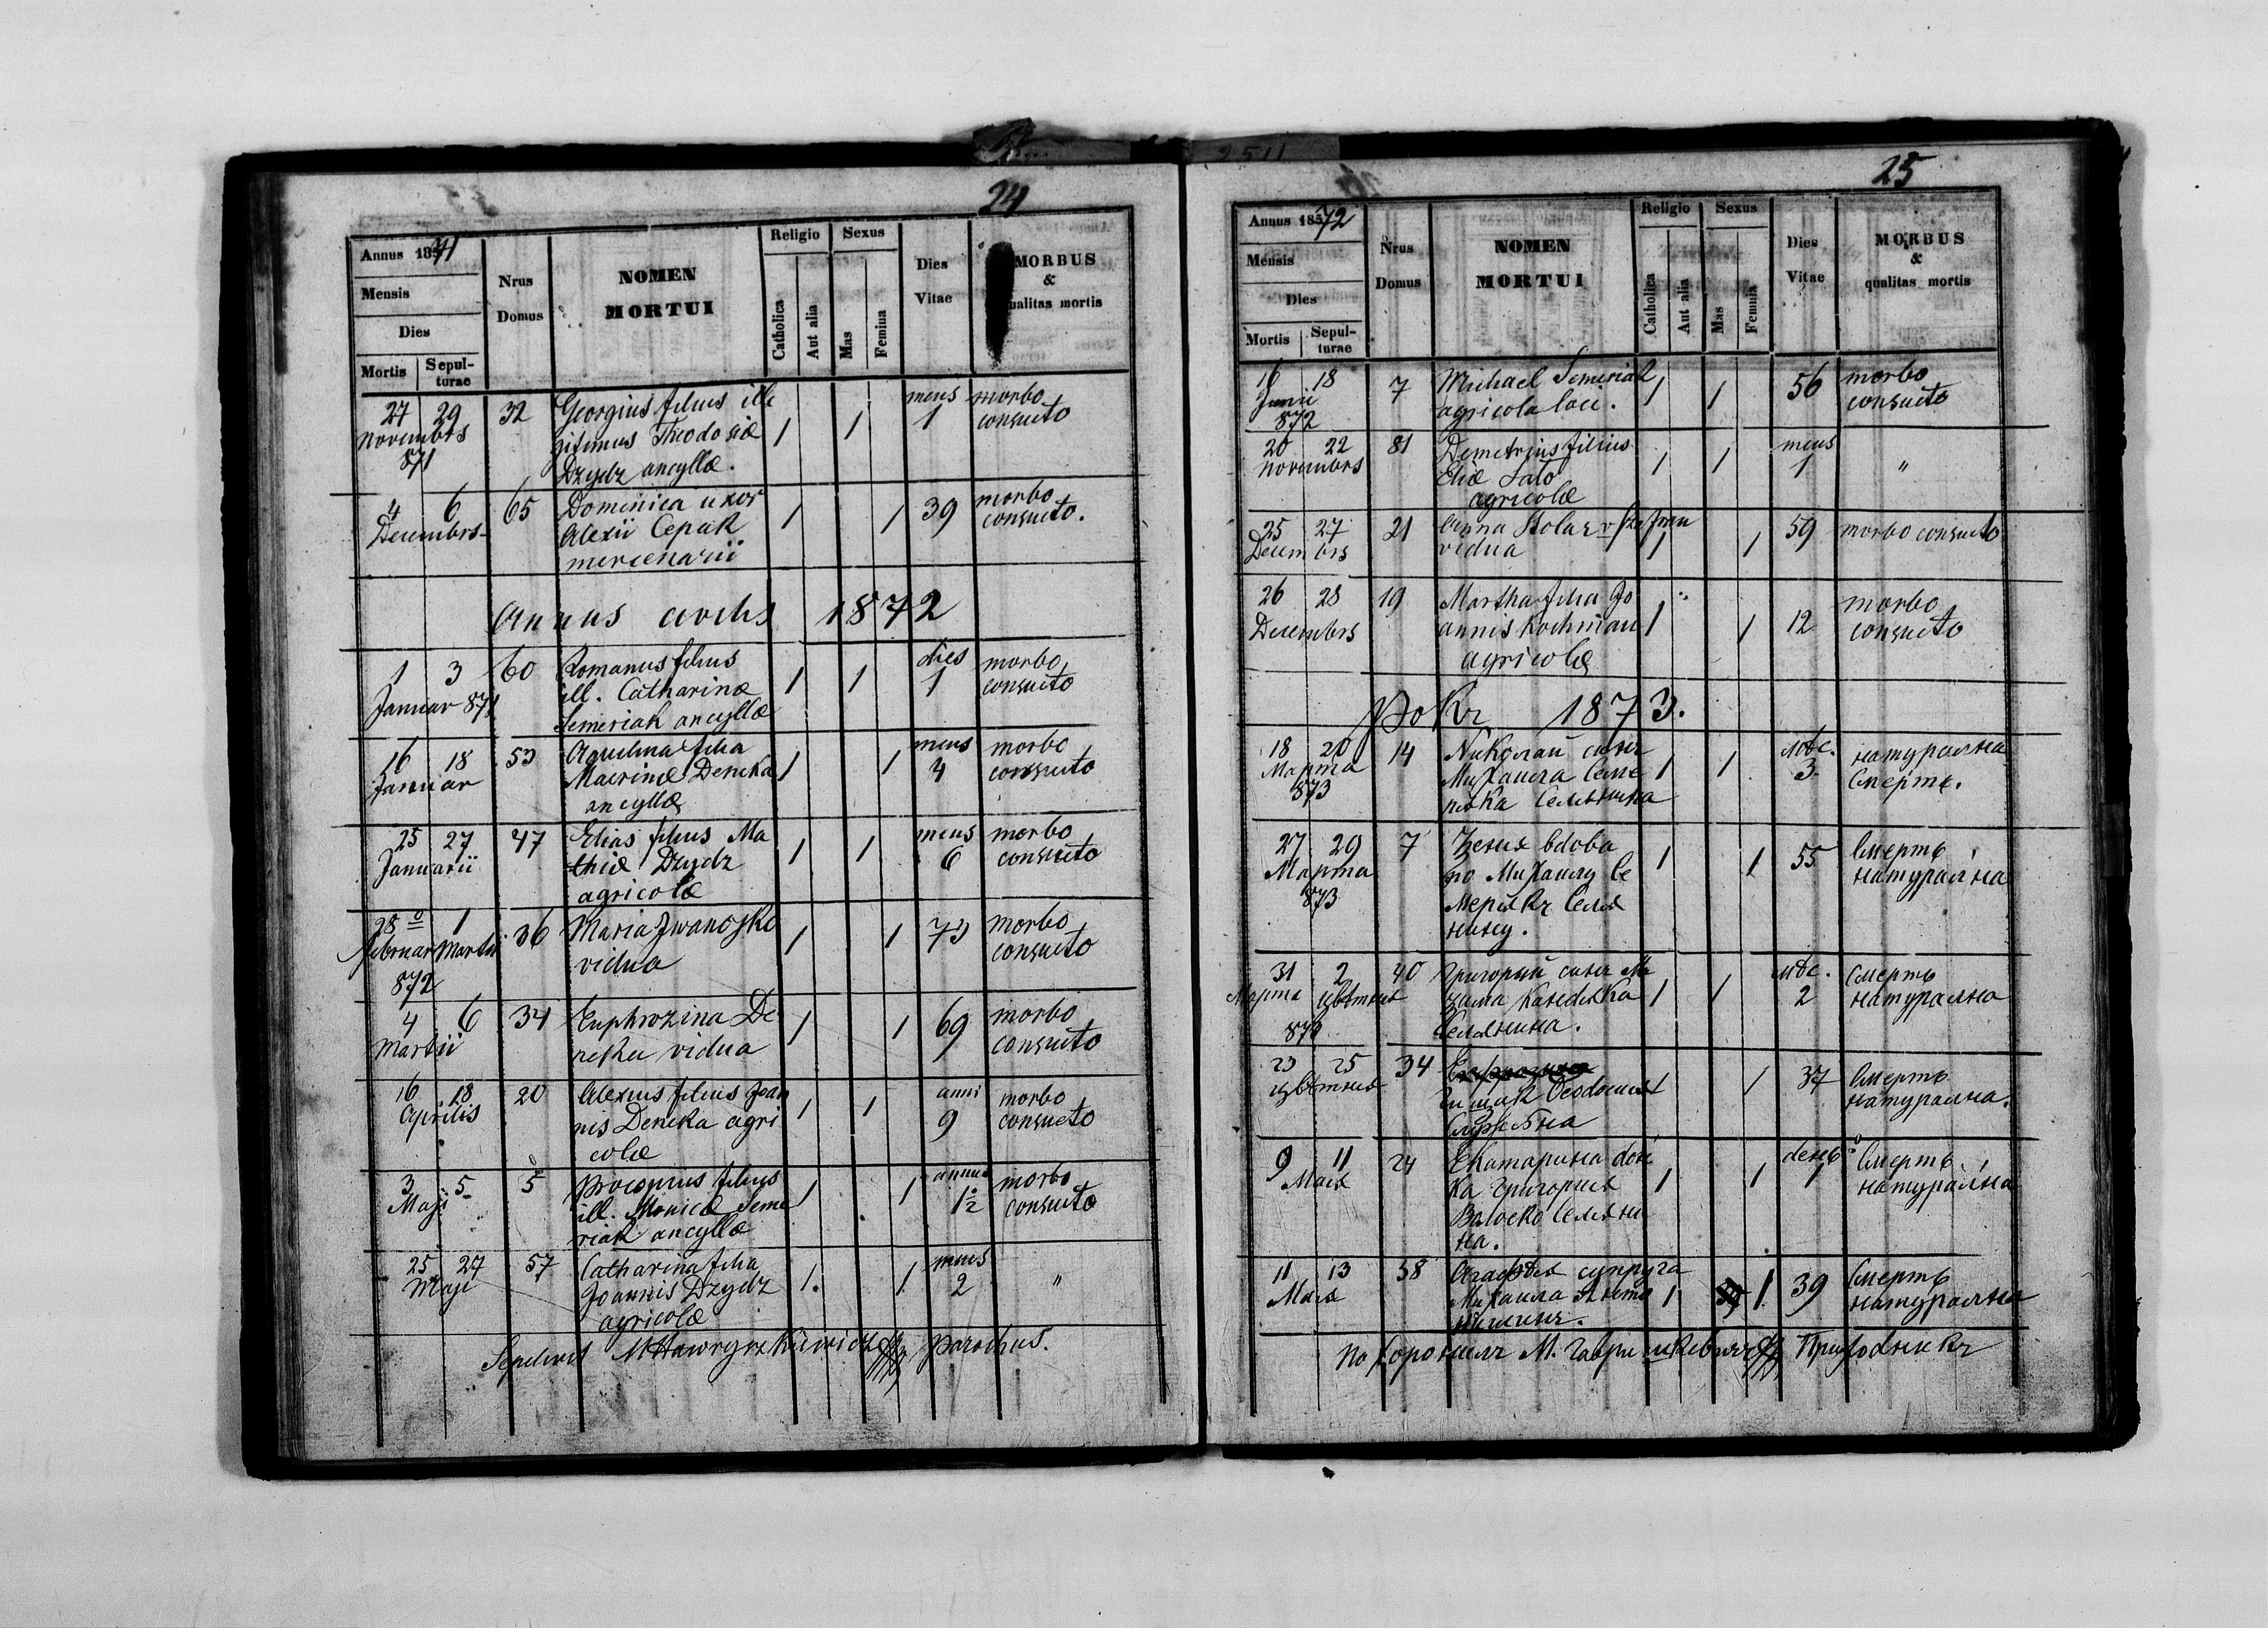 24
Annus 1871
Mensis
Dies
Mortis Sepulturae
Nrus Domus
NOMEN MORTUI
Religio
Catholica Aut alia
Sexus
Mas Femina
Dies Vitae
MORBUS & qualitas mortis
27 29 32 Georgius filius ille mens morbo
Novembrs gitimus Theodosiæ 1 1 1 consueto
871 Dzydz ancyllæ.
4 6 65 Dominica uxor 1 1 39 morbo
Decembrs Alexii Cepak consueto.
mercenarii
Annus civilis 1872
1 3 60 Romanus filius dies morbo
Januar 871 ill. Catharinæ 1 1 1 consueto
Semeriak ancyllæ
16 18 53 Aquilina filia mens morbo
Januar Macrinæ Deneka 1 1 4 consueto
ancyllæ
25 27 47 Elias filius Ma mens morbo
Januarii thiæ Dzydz 1 1 6 consueto
agricolæ
28 1 36 Maria Iwanojko 1 1 73 morbo
Februar Martii vidua consueto
872
4 6 34 Euphrozina De 1 1 69 morbo
Martii neka vidua consueto
16 18 20 Alexius filius Joan anni morbo
Aprilis nis Deneka agri 1 1 9 consueto
colæ
3 5 5 Procopius filius annus morbo
Maji ill. Monicæ Seme 1 1 1½ consueto
riak ancyllæ
25 27 57 Catharina filia mens
Maji Joannis Dzydz 1. 1 2 "
agricolæ
Sepelivit M Hawryszkiewicz parochus.
25
Annus 1872
Mensis
Dies
Mortis Sepulturae
Nrus Domus
NOMEN MORTUI
Religio
Catholica Aut alia
Sexus
Mas Femnia
Dies Vitae
MORBUS & qualitas mortis
16 18 7 Michael Semeriak 1 1 56 morbo
Junii agricola loci. consueto
872
20 22 81 Demetrius filius mens
Novembrs Eliæ Lato 1 1 1 "
agricolæ
25 27 21 Anna Stolar 59 morbo consueto
Decembrs vidua 1 1
26 28 19 Martha filia Jo morbo
Decembrs annis Kochman 1 1 12 consueto
agricolæ
рокъ 1873.
18 20 14 Николай сынъ мѣс. натуральна
Марта Михаила Семе 1 1 3. Смерть.
873 ряка Селянина
27 29 7 вдова 1 1 55 Смерть
Марта по Михаилу Се натурална
873 мерякъ Селя
нину.
31 2 40 Григорий сынъ мѣс. Смерть
Марта Цвѣтня 1 1 2 натурална
873 Селянина.
23 25 34 1 1 37 Смерть
Цвѣтня Феодосия натурална.
Служебна
9 11 24 Екатарина доч день Смерть
Мая ка Григория 1 1 1 натурална
Валоско Селяни
на.
11 13 38 Агафия супруга 1 1 39 Смерть
Мая Михаила натурална
похоронилъ М. Гавришкевичъ Приходникъ